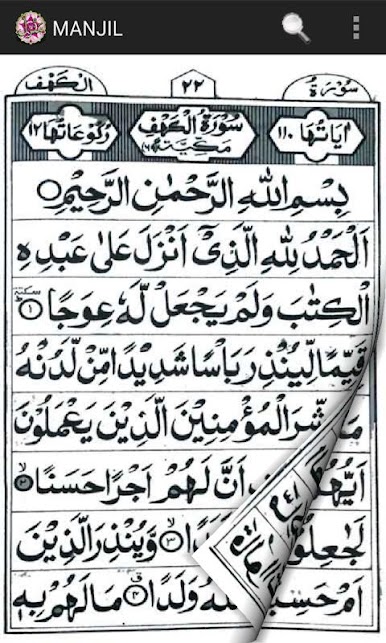 MANJIL
سُورَة ٢٢ الكهف
اٰيَاتُهَا ١١٠ سُوْرَةُ الْكَهْفِ مَكِّيَّةٌ رُكُوْعَاتُهَا ١٢
بِسْمِ اللّٰهِ الرَّحْمٰنِ الرَّحِيْمِ
اَلْحَمْدُ لِلّٰهِ الَّذِيْٓ اَنْزَلَ عَلٰى عَبْدِهِ
الْكِتٰبَ وَلَمْ يَجْعَلْ لَّهٗ عِوَجًا ۜ ١
قَيِّمًا لِّيُنْذِرَ بَاْسًا شَدِيْدًا مِّنْ لَّدُنْهُ
الْمُؤْمِنِيْنَ الَّذِيْنَ يَعْمَلُوْنَ
اَنَّ لَهُمْ اَجْرًا حَسَنًا ٢
٣ وَّيُنْذِرَ الَّذِيْنَ
اللّٰهُ وَلَدًا ٤ مَا لَهُمْ بِهٖ